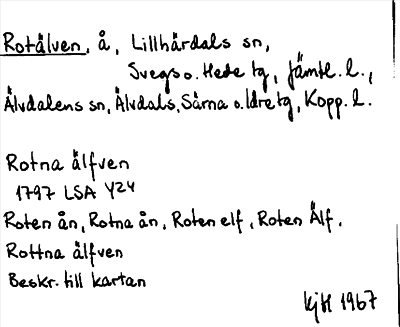 Rotälven, å, Lillhärdals sn,
Svegs o. Hede tg, Jämtl. l.,
Älvdalens sn, Älvdals, Särna o. Idre tg, Kopp. l.
Rotna älfven
1797 LSA Y24
Roten ån, Rotna ån, Roten elf, Roten Älf.
Rottna älfven
Beskr. till kartan
KjH 1967